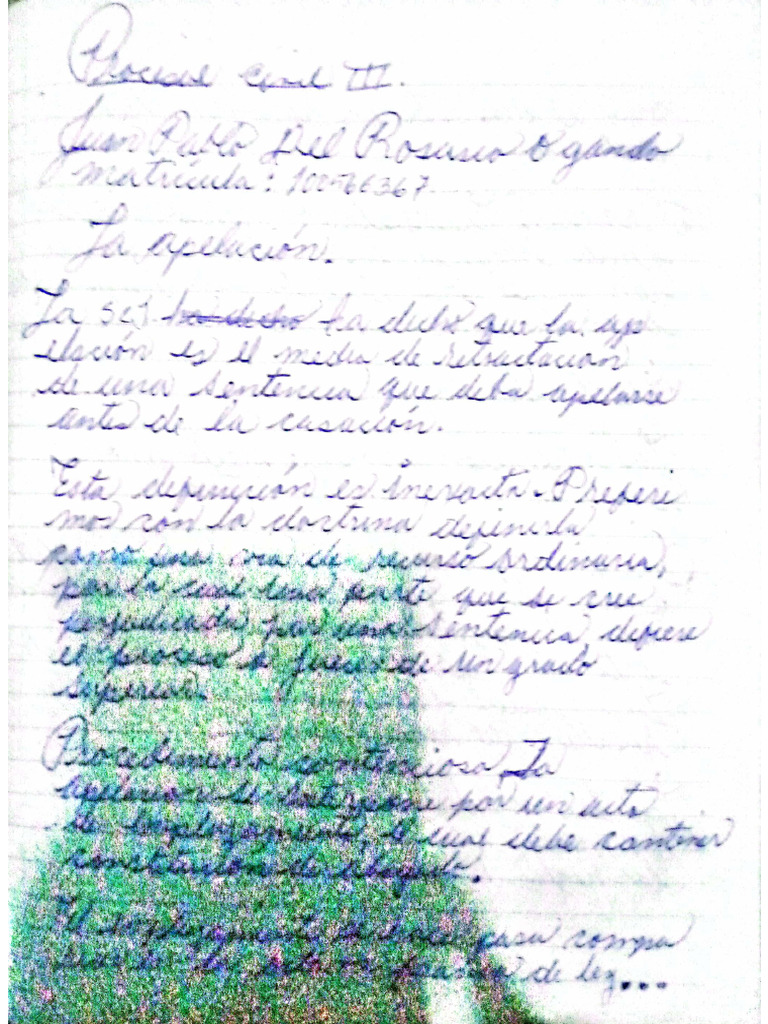 Procesal Civil III.
Juan Pablo Del Rosario Ogando
Matrícula: 100-66367
La apelación.
La SCJ ha dicho ha dicho que la ap
elación es el medio de retractación
de una sentencia que deba apelarse
antes de la casación.
Esta definición es inexacta. Preferi
mos con la doctrina definirla
como una vía de recurso ordinaria,
por la cual una parte que se cree
perjudicada por una sentencia, defiere
el proceso a jueces de un grado
superior.
Procedimiento contencioso, La
apelación se interpone por un acto
de emplazamiento, el cual debe contener
constitución de abogado.
El emplazamiento se hace para compa
de ley...